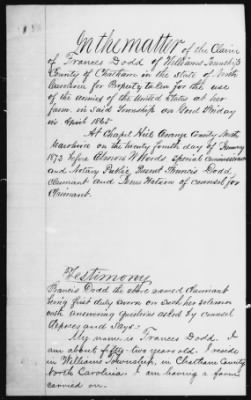 In the matter of the Claim
of Frances Dodd of Williams Township
County of Chatham in the state of North
Carolina for Property taken for the use
of the armies of the United States at her
farm in said Township on Good Friday
in April 1865
At Chapel Hill Orange County North
Carolina on the twenty fourth day of January
1873 before Special Commissioner
and Notary Public Present Frances Dodd
Claimant and Jones Watson of counsel for
Claimant.
Testimony
Francis Dodd the above named Claimant
being first duly sworn on such her solemn
oath answering questions asked by counsel
deposes and says:-
My name is Frances Dodd. I
am about fifty-two years old. I reside
in Williams Township, in Chatham County
North Carolina. I am having a farm
carried on.